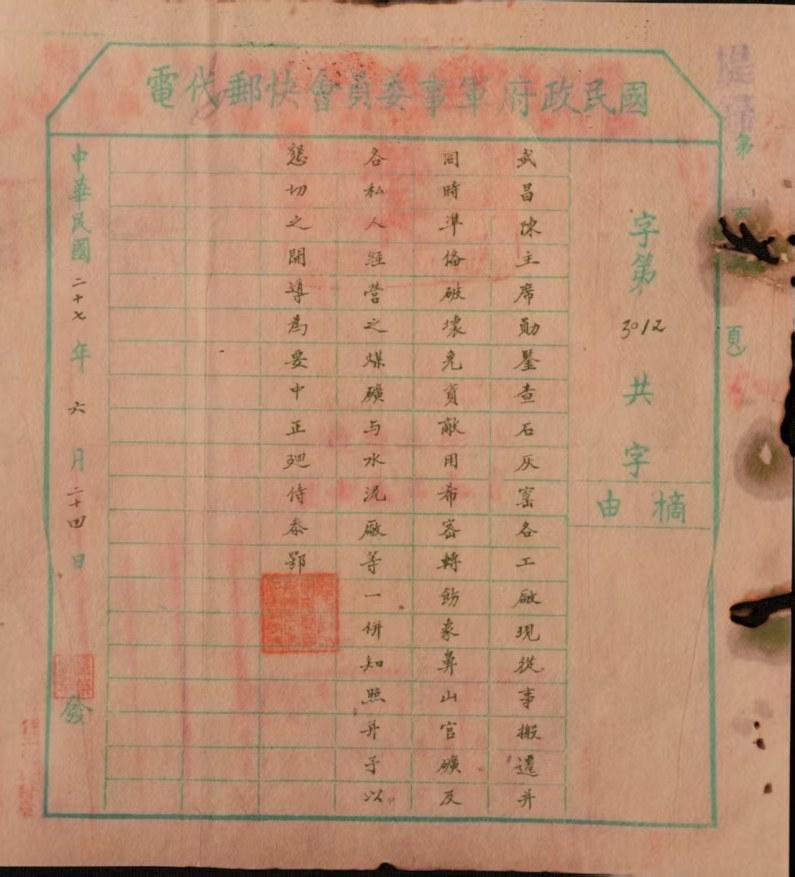 國民政府軍事委員會快郵代電
第
頁
字第3012
共 字
摘由
武昌陳主席勛鑒查石灰窰各工廠現從事搬遷并
同時準備破壞免資敵用希密轉飭象鼻山官礦及
各私人經營之煤礦与水泥廠等一併知照并予以
懇切之開導為要中正 侍叅鄂
中華民國二十七年六月二十四日
發